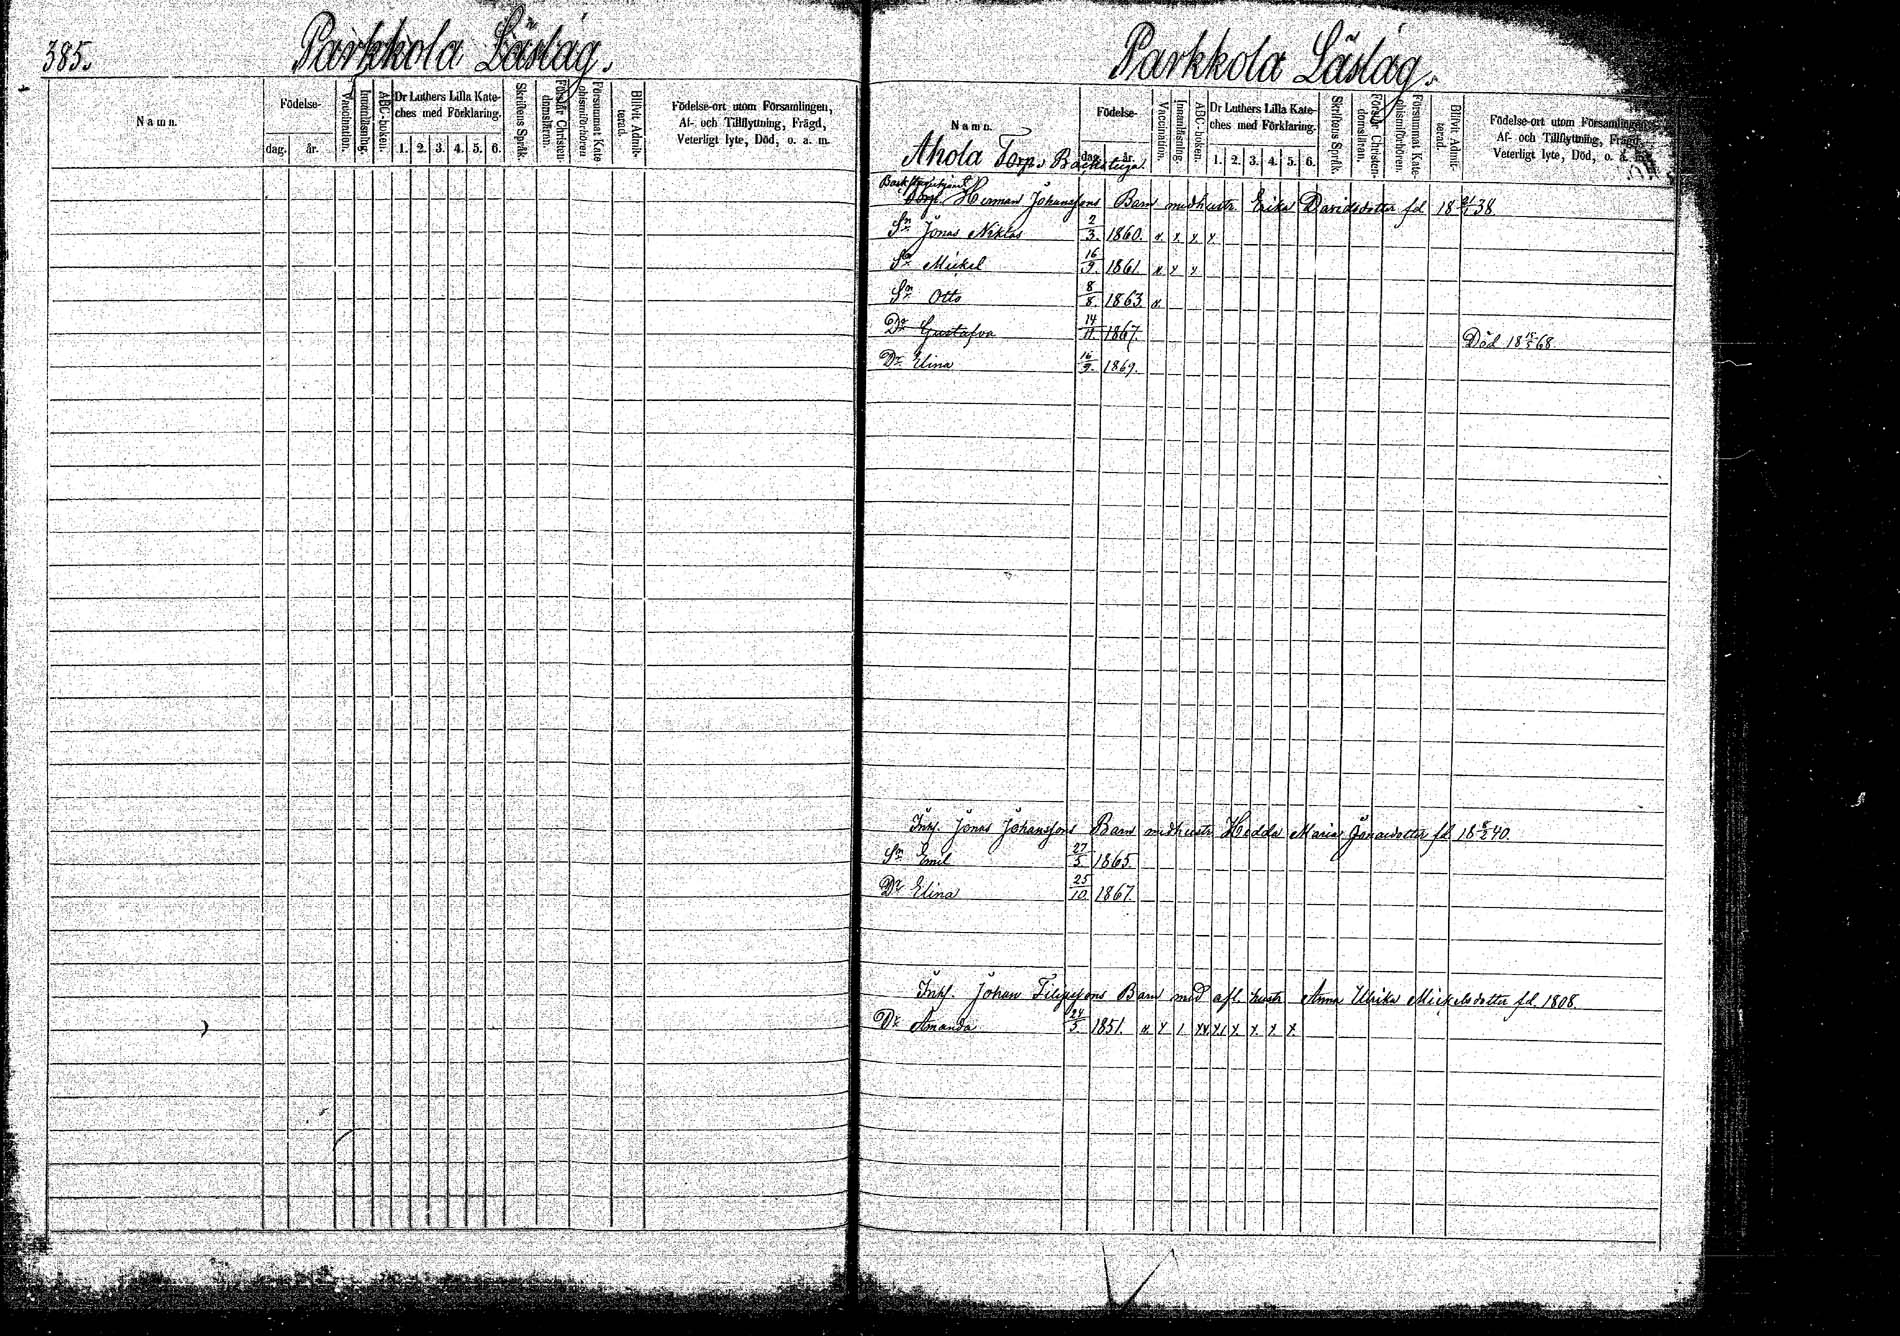 385.
Parkkola Läslag.
Namn.
Födelse-
dag. år.
Vaccination.
Innanläsning.
ABC-boken.
Dr Luthers Lilla Kate-
ches med Förklaring.
1. 2. 3. 4. 5. 6.
Skriftens Språk.
Förstår Christen-
domsläran.
Försummat Kate
chismiförhören
Blifvit Admit-
terad.
Födelse-ort utom Församlingen,
Af- och Tillflyttning, Frägd,
Veterligt lyte, Död, o. a. m.
Parkkola Läslag.
Namn.
Födelse-
dag. år.
Vaccination.
Innanläsning.
ABC-boken.
Dr Luthers Lilla Kate-
ches med Förklaring.
1. 2. 3. 4. 5. 6.
Skriftens Språk.
Förstår Christen-
domsläran.
Försummat Kate-
chismiförhören.
Blifvit Admit-
terad.
Födelse-ort utom Församlingen,
Af- och Tillflyttning, Frägd,
Veterligt lyte, Död, o. a. m.
Ahola Torp. Backstuga
Torp. Herman Johanssons Barn med hustr. Erika Davidsdotter fd 18 21/1 38.
Sn Jonas Niklas 2/3. 1860. x x x x
Sn Mickel 16/9. 1861 x x x
Sn Otto 8/8. 1863 x
Dr Gustafva 14/11. 1867. Död 18 15/5 68
Dr Elina 16/9. 1869.
Inh. Jonas Johanssons Barn med hustr. Hedda Maria Jonasdotter fd. 18 8/2 40.
Sn Emil 27/5 1865.
Dr Elina 25/10 1867.
Inh. Johan Filipssons Barn med afl. hustr. Anna Ulrika Mickelsdotter fd. 1808.
Dr Amanda 24/5. 1851. x x 1 xx x1 x x x x